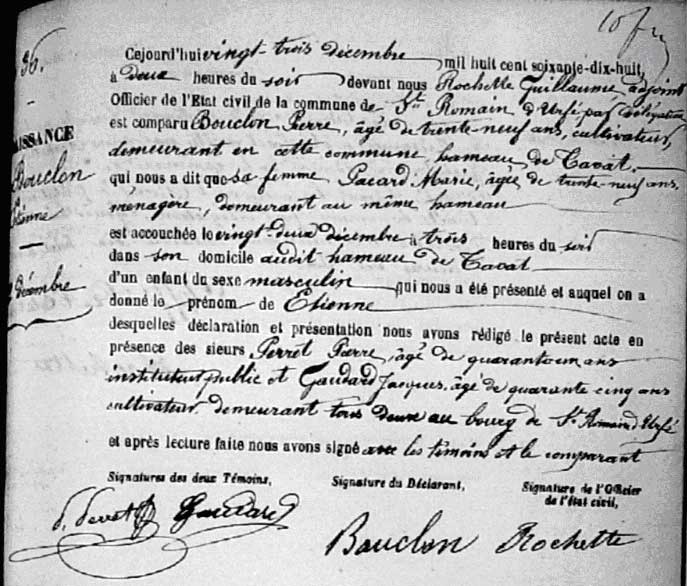 10 fr
36.
Cejourd'hui vingt-trois décembre mil huit cent soixante-dix-huit,
à deux heures du soir devant nous Rochette Guillaume, adjoint
Officier de l'Etat civil de la commune de St Romain d'Urfé par délégation
est comparu Bouclon Pierre, âgé de trente neuf ans, cultivateur,
demeurant en cette commune hameau de Cavat.
qui nous a dit que sa femme Pacard Marie, âgée de trente-neuf ans,
ménagère, demeurant au même hameau
est accouchée le vingt-deux décembre à trois heures du soir
dans son domicile audit hameau de Cavat
d'un enfant du sexe masculin qui nous a été présenté et auquel on a
donné le prénom de Etienne
desquelles déclaration et présentation nous avons rédigé le présent acte en
présence des sieurs Perret Pierre, âgé de quarante un ans
instituteur public et Gaudard Jacques, âgé de quarante cinq ans
cultivateur demeurant tous deux au bourg de St Romain d'Urfé
et après lecture faite nous avons signé avec les témoins et le comparant
AISSANCE
Bouclon
Etienne
décembre
Signatures des deux Témoins,
Signature du Déclarant,
Signature de l'Officier
de l'état civil,
Gaudard
Bouclon
Rochette